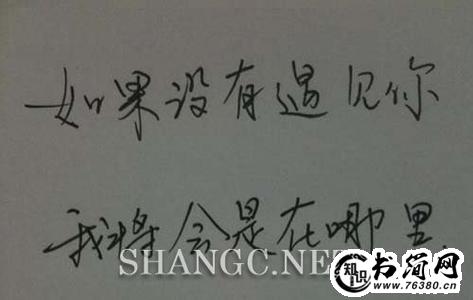 如果没有遇见你
我将会是在哪里
SHANGC.NET
知识 书简网
www.76380.cn